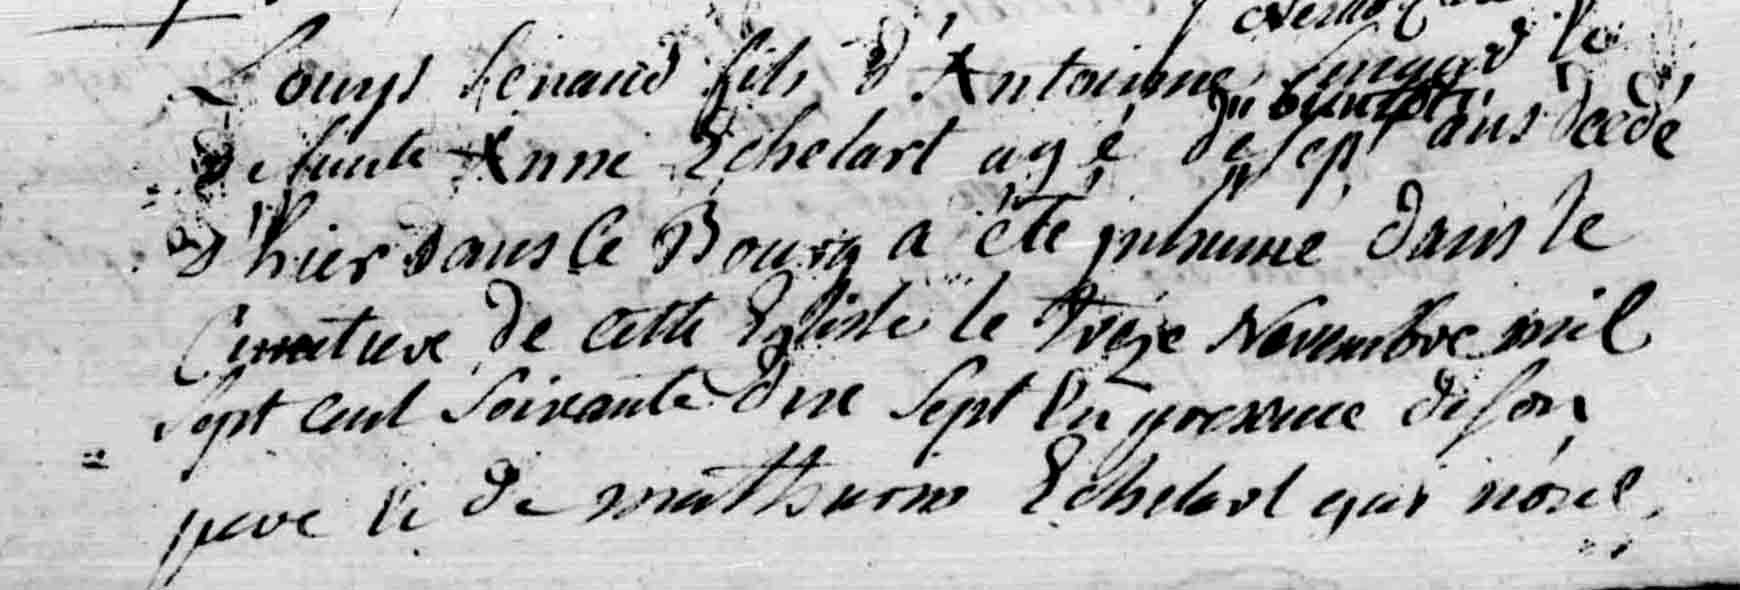 Louys Renaud fils d'Antoinne Renaud &
defunte Anne Echelart agé de sept ans decedé
d'hier dans le Bourg a été inhumé dans le
Cimetiere de cette Eglise le treize Novembre mil
Sept cent soixante dix sept En presence de son
pere & de mathurin Echelart qui n'ont